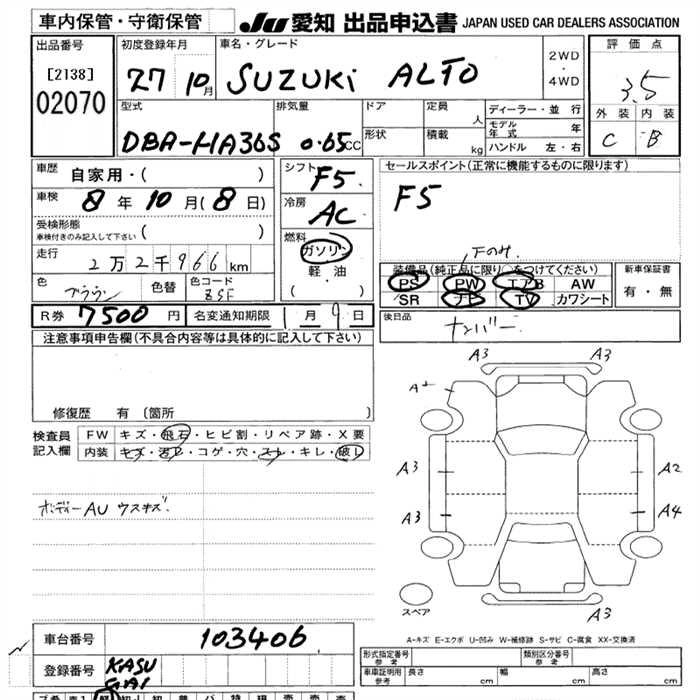 車内保管・守衛保管
JU 愛知 出品申込書 JAPAN USED CAR DEALERS ASSOCIATION
出品番号
[2138]
02070
初度登録年月
27 10月
車名・グレード
SUZUKI ALTO
2WD
・
4WD
評価点
3.5
外装 内装
C B
型式
DBA-HA36S
排気量
0.65cc
ドア
形状
定員
人
積載
kg
ディーラー・並行
モデル年式 年
ハンドル 左・右
車歴 自家用・( )
車検 8年10月(8日)
受検形態
車検付きのみ記入して下さい ( )
走行 2万2千966km
色 ブラウン 色替 色コード
R券 7500円 名変通知期限 1月9日
シフト F5
冷房 AC
燃料
ガソリン
軽・油
( ・ )
セールスポイント(正常に機能するものに限ります)
F5
Fのみ
装備品(純正品に限り○をつけてください)
PS PW エアB AW
SR ナビ TV カワシート
新車保証書
有・無
後日品
ナンバー
注意事項申告欄(不具合内容等は具体的に記入して下さい)
修復歴 有 〔箇所 〕
検査員
記入欄
FW キズ・飛石・ヒビ割・リペア跡・X要
内装 キズ・汚レ・コゲ・穴・スレ・キレ・破レ
ボディーAU ウスキズ
A3 A3
A3 A2
A3 A4
A3
スペア
A-キズ E-エクボ U-凹み W-補修跡 S-サビ C-腐食 XX-交換済
車台番号 103406
登録番号 KASU
GAI
形式指定番号
参考
類別区分番号
参考
車庫証明用
参考
長さ cm 幅 cm 高さ cm